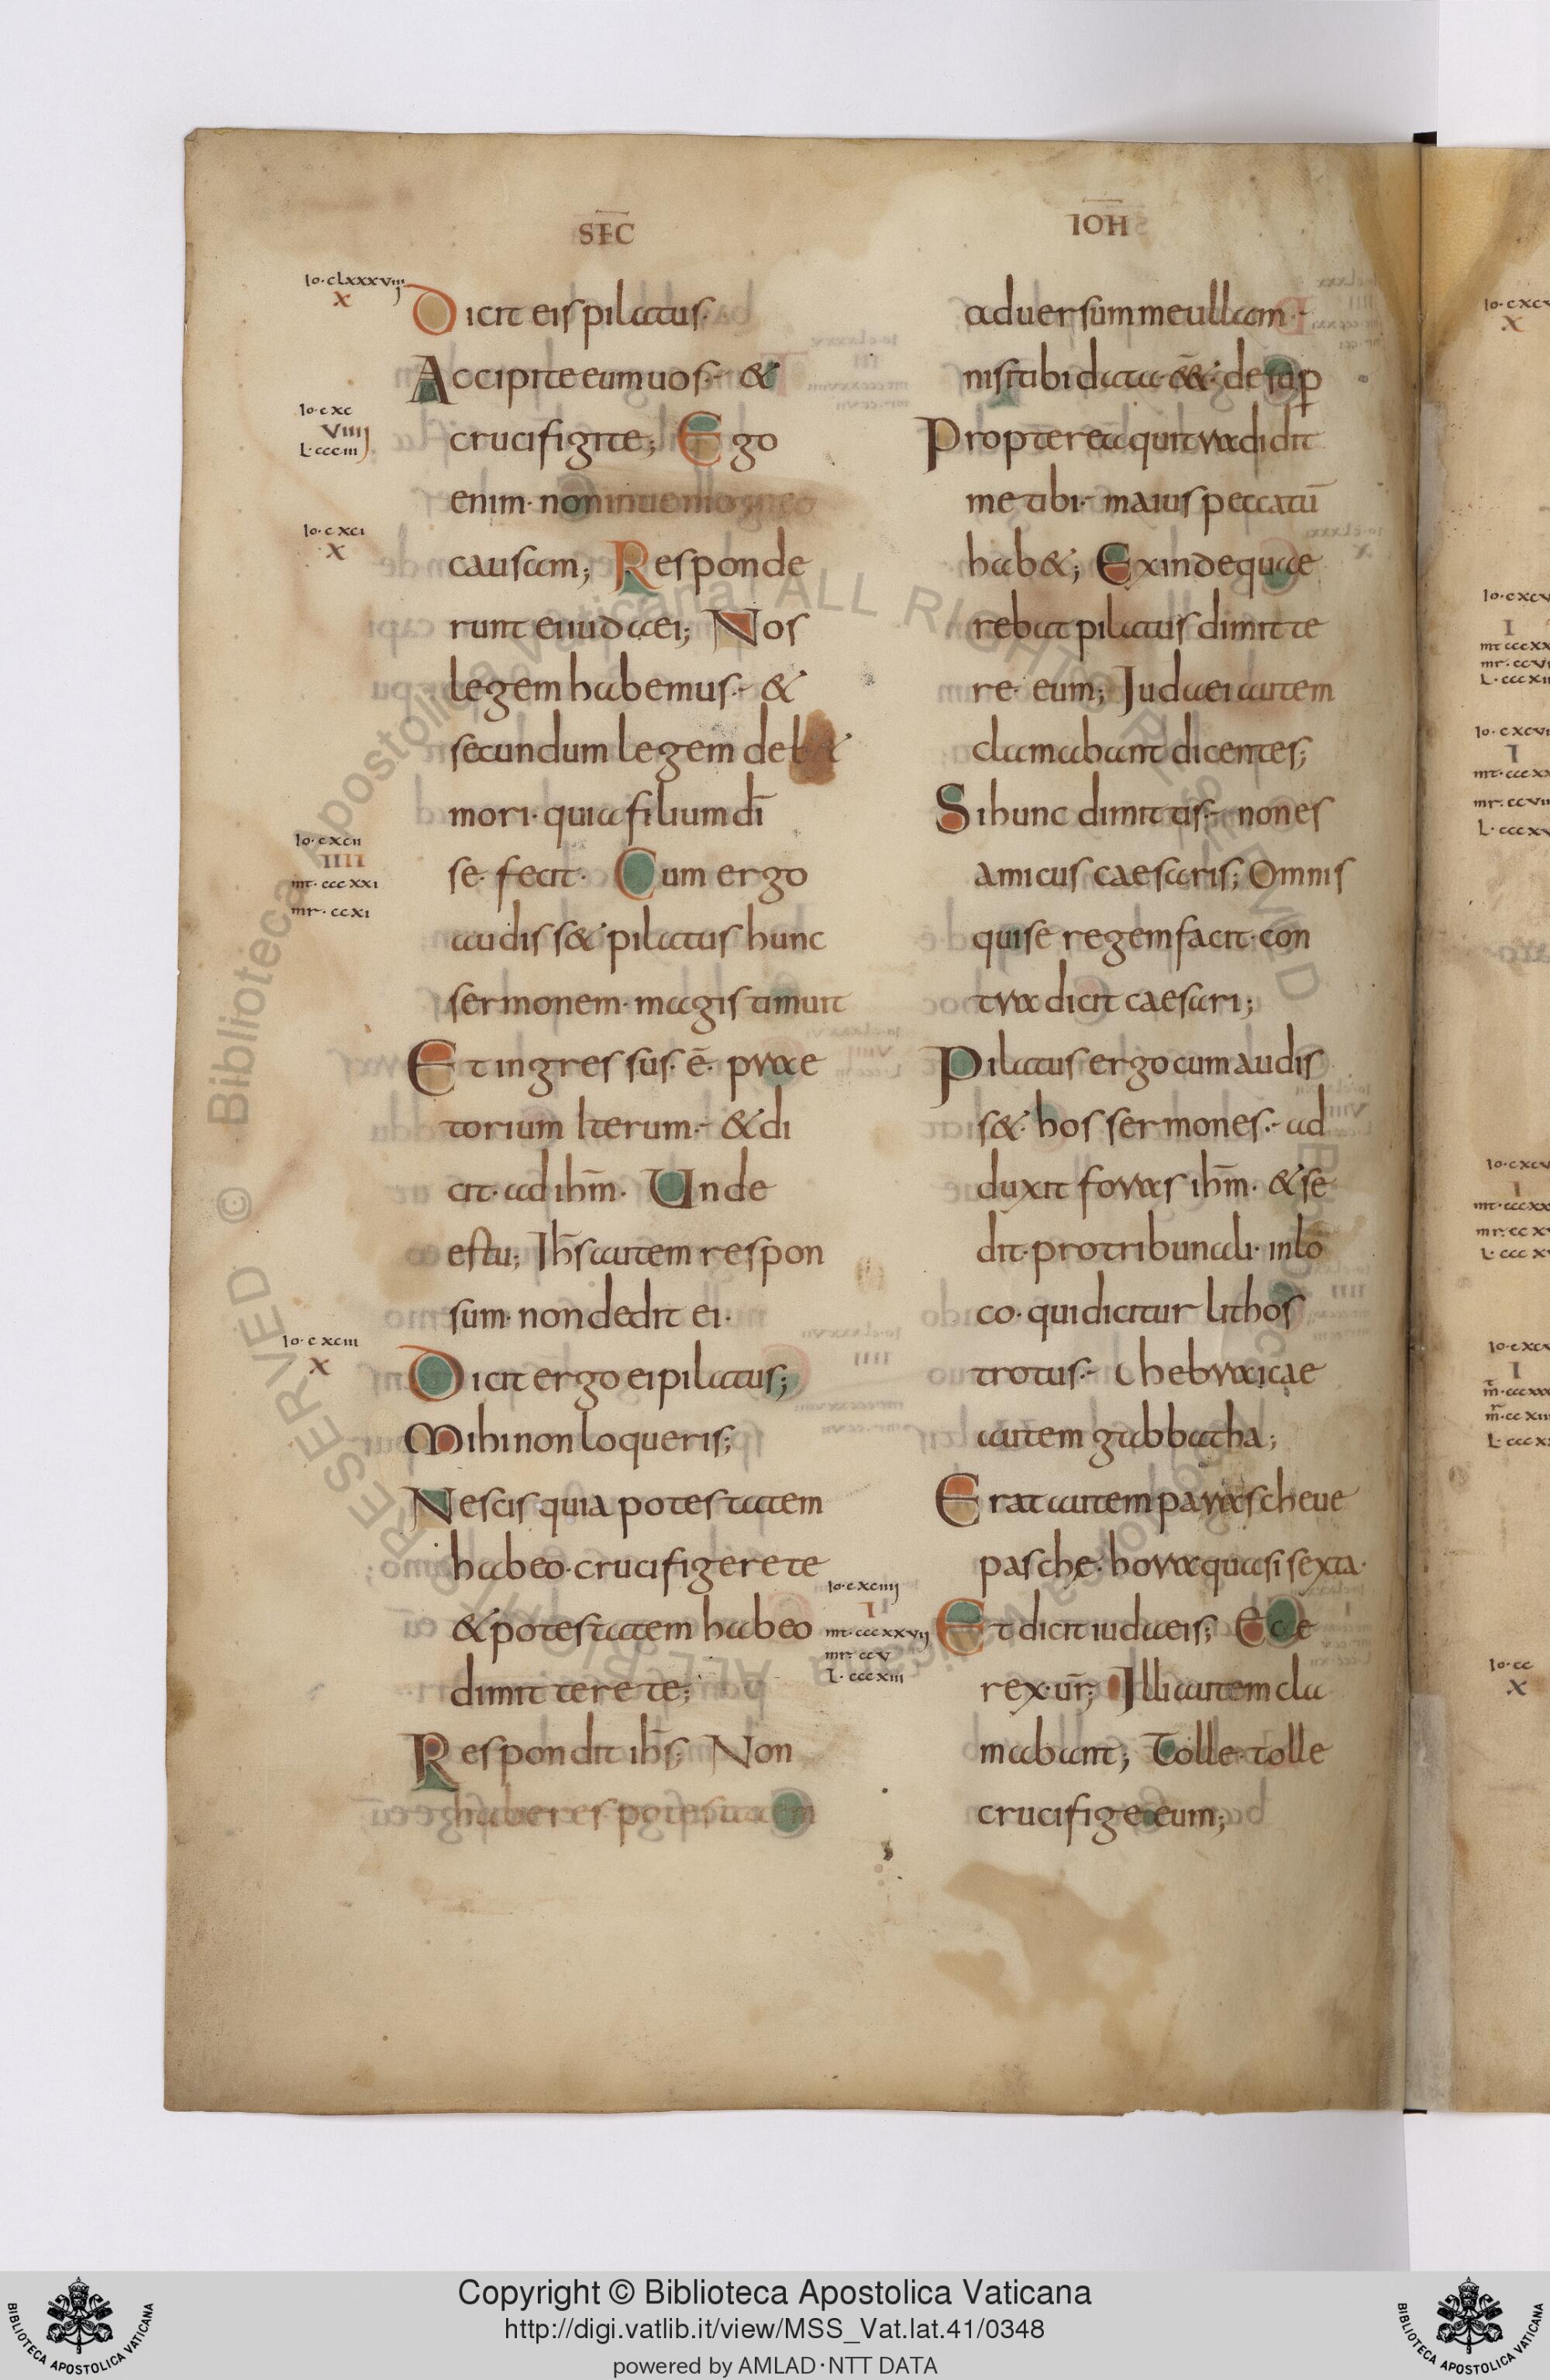 SEC
IOH
Io·clxxxviiij
X
Dicit eis pilatus·
Accipite eum uos·- &
Io·cxc
VIIII
L·ccciiij
crucifigite; Ego
enim· non inuenio in eo
Io·cxci
X
causam; Responde
runt ei iudaei; Nos
legem habemus·- &
secundum legem deb&
mori· quia filium dī
Io·cxcii
IIII
mt·cccxxi
mr·ccxi
se· fecit· Cum ergo
audiss& pilatus hunc
sermonem· magis timuit
Et ingressus· ē· prae
torium Iterum·- & di
cit· ad ihm̄· Unde
es tu; Ihs̄ autem respon
sum· non dedit ei·
Io·cxciii
X
Dicit ergo ei pilatus;
Mihi non loqueris;
Nescis quia potestatem
habeo· crucifigere te
& potestatem habeo
dimittere te;
Respondit ihs̄; Non
haberes potestatem
aduersum me ullam·-
nisi tibi data eē&· desup̱
Propterea qui tradidit
me tibi·- maius peccatū
hab&; Exinde quae
rebat pilatus dimitte
re· eum; Judaei autem
clamabant dicentes;
Si hunc dimittis·- non es
amicus caesaris; Omnis
qui se regem facit· con
tradicit caesari;
Pilatus ergo cum audis
s&· hos sermones·- ad
duxit foras ihm̄· & se
dit· pro tribunali· in lo
co· qui dicitur lithos
trotus·- hebraicae
autem gabbatha;
Erat autem parascheue
pasche· hora quasi sexta·
Io·cxciiij
I
mt·cccxxvij
mr·ccv
L·cccxiii
Et dicit iudaeis; Ecce
rex· ur̄; Illi autem cla
mabant; Tolle· tolle
crucifige eum;
Copyright © Biblioteca Apostolica Vaticana
http://digi.vatlib.it/view/MSS_Vat.lat.41/0348
powered by AMLAD·NTT DATA